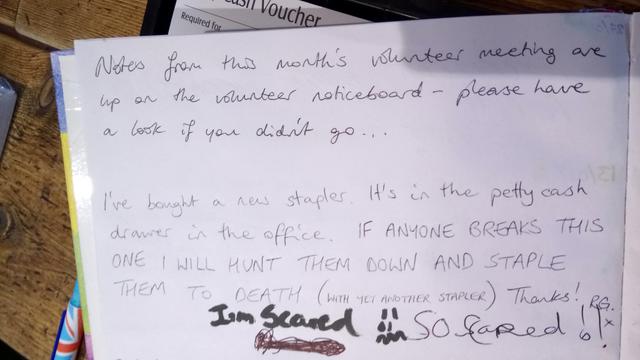 Cash Voucher
Required for
Notes from this month's volunteer meeting are
up on the volunteer noticeboard – please have
a look if you didn't go...
I've bought a new stapler. It's in the petty cash
drawer in the office. IF ANYONE BREAKS THIS
ONE I WILL HUNT THEM DOWN AND STAPLE
THEM TO DEATH (WITH YET ANOTHER STAPLER) Thanks! R.G.
I'm Scared SO Scared